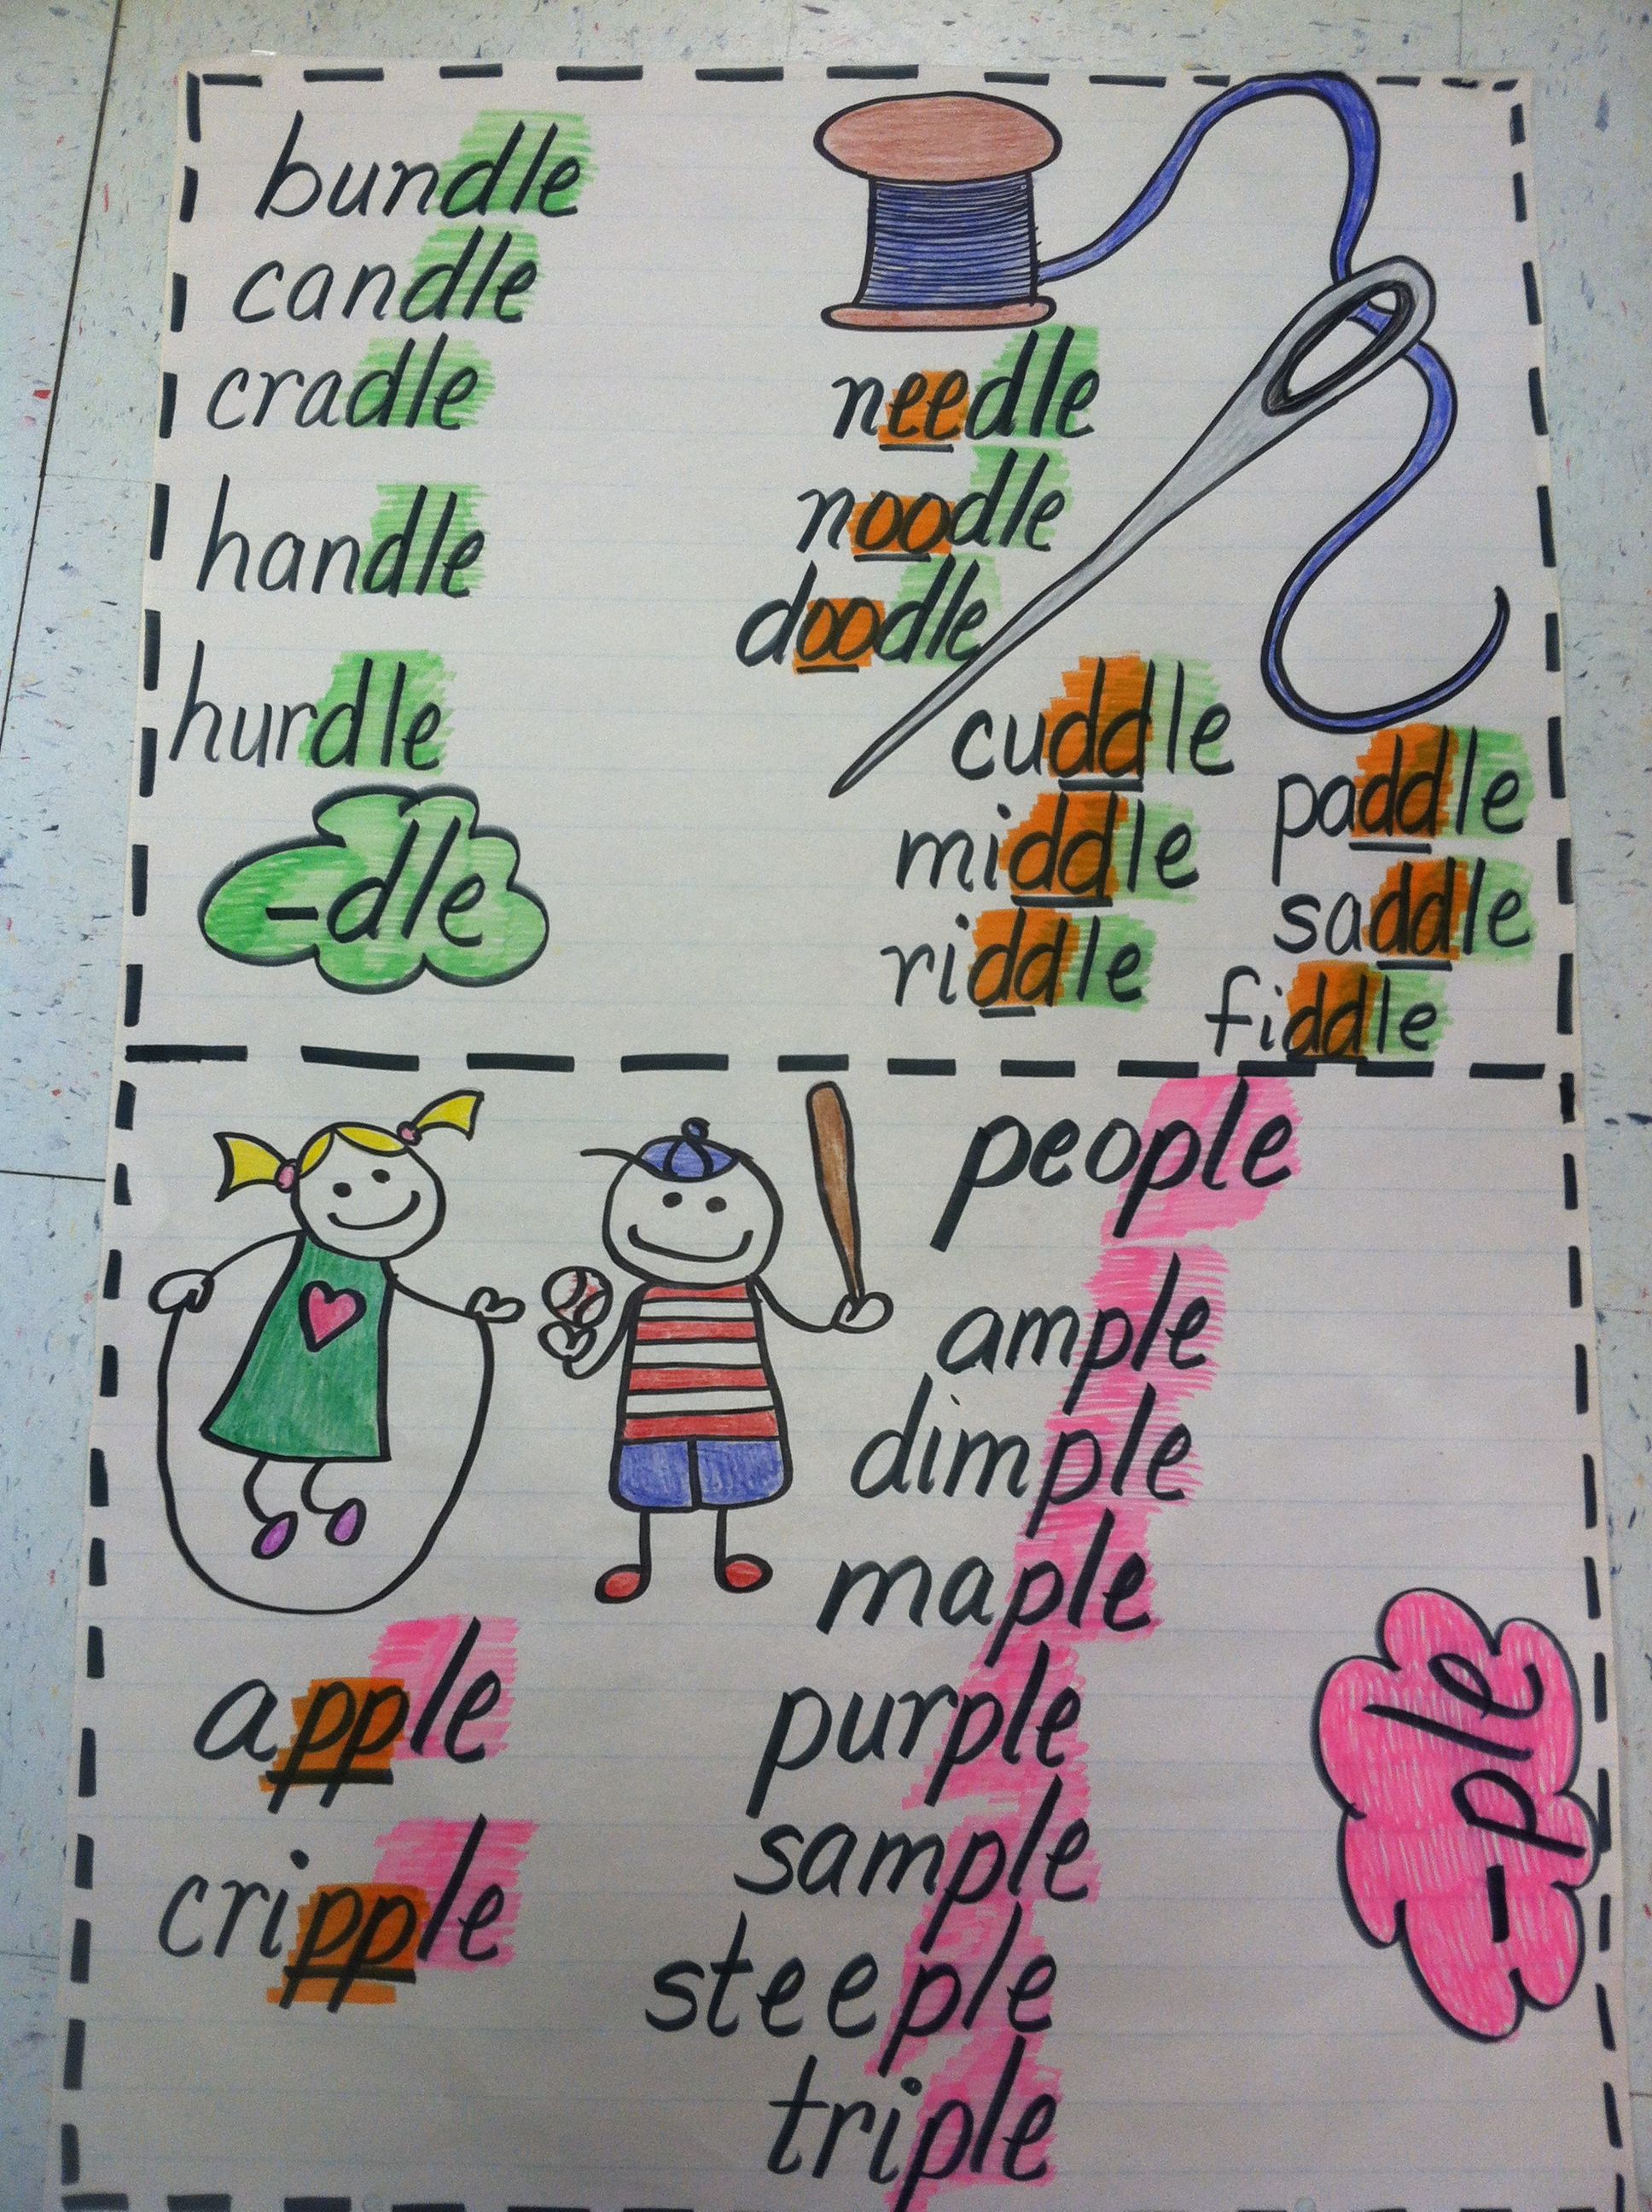 bundle
candle
cradle
handle
hurdle
-dle
needle
noodle
doodle
cuddle
middle
riddle
paddle
saddle
fiddle
people
ample
dimple
maple
purple
sample
steeple
triple
apple
cripple
-ple